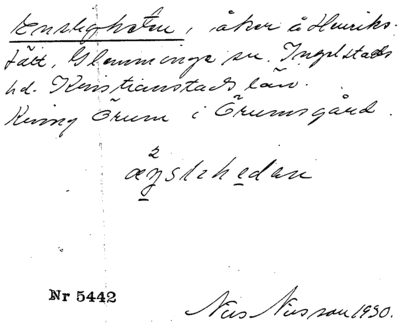 Ensligheten, åker å Henriks-
fält, Glemminge sn. Ingelstads
hd. Kristianstads län.
Kring Örum i Örumsgård.
Nr 5442
Nils Nilsson 1930.